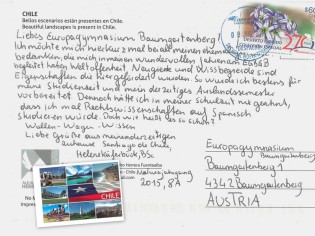 CHILE
Bellos escenarios están presentes en Chile.
Beautiful landscapes is present in Chile.
Liebes Europagymnasium Baumgartenberg!
Ich möchte mich hierbei mal bei all meinen ehemaligen
bedanken, die mich in meinen wundervollen Jahren am EGBAB
begleitet haben. Weltoffenheit Neugierde und Wissbegierde sind
Eigenschaften die hier gefördert wurden. So wurde ich bestens für
meine Studienzeit und mein derzeitiges Auslandssemester
vorbereitet. Dennoch hätte ich in meiner Schulzeit nie geahnt,
dass ich mal Rechtswissenschaften auf Spanisch
studieren würde. Doch wie heißt es so schön?
Wollen - Wagen - Wissen
Liebe Grüße aus meinem derzeitigen
zuhause Santiago de Chile,
Helena Käferböck, BSc.
Maturajahrgang
2015, 8A
Europagymnasium
Baumgartenberg
Baumgartenberg 1
4342 Baumgartenberg
AUSTRIA
CHILE